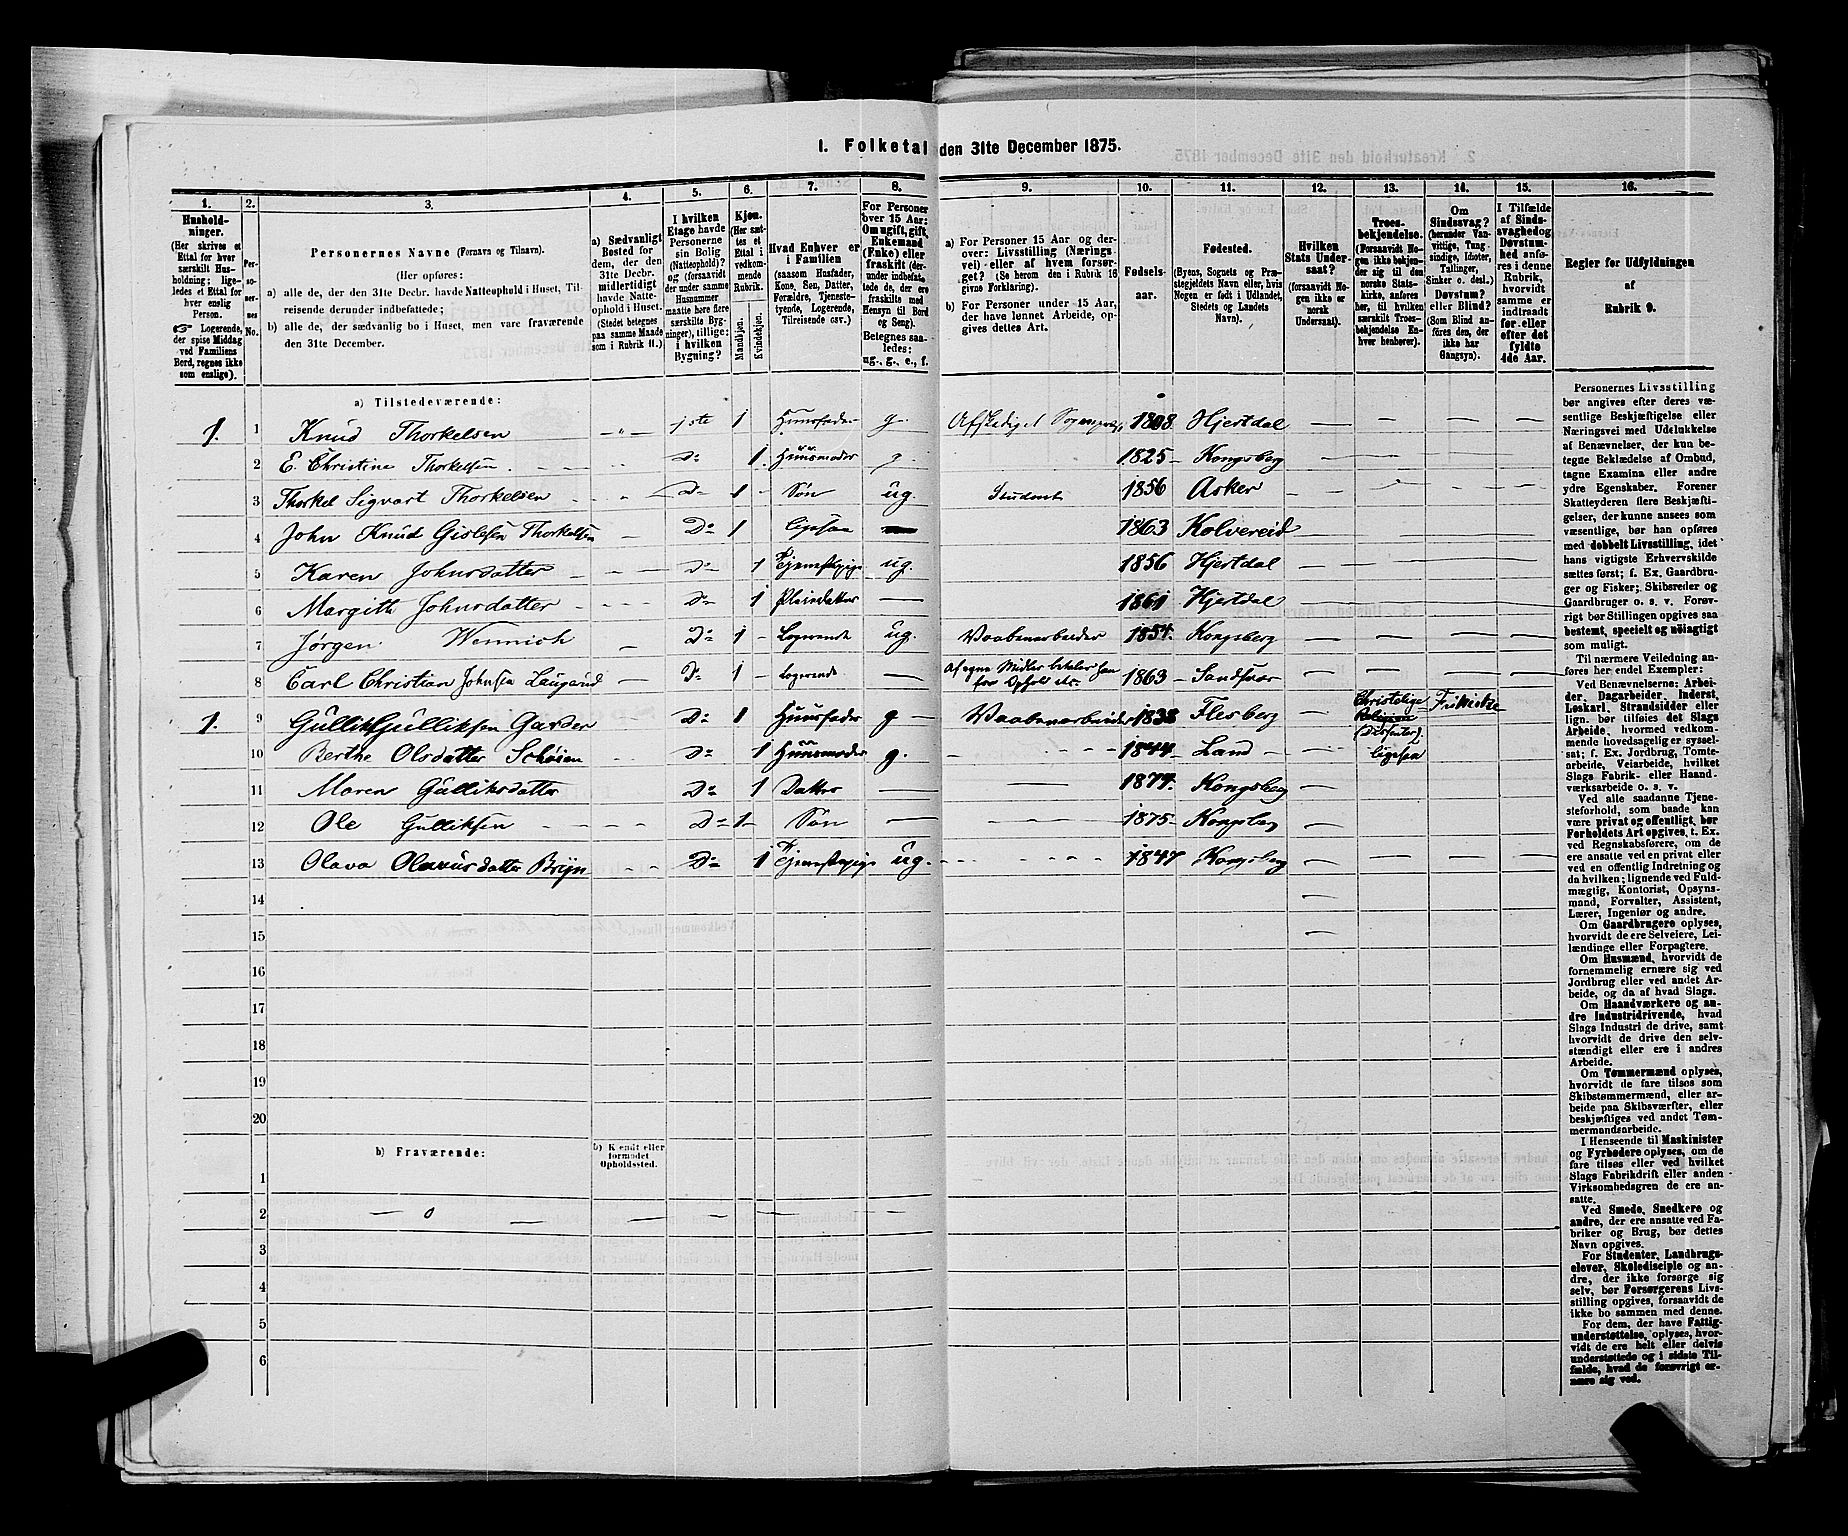 1. Folketal den 31te December 1875.
1. 2. 3. 4. 5. 6. 7. 8. 9. 10. 11. 12. 13. 14. 15. 16.
Hushold-
ninger.
(Her skrives et
Ettal for hver
særskilt Hus-
holdning; lige-
ledes et Ettal for
hver enslig
Person.
☞ Logerende,
der spise Middag
ved Familiens
Bord, regnes ikke
som enslige).
Per-
so-
ner-
nes
No.
Personernes Navne (Fornavn og Tilnavn).
(Her opføres:
a) alle de, der den 31te Decbr. havde Natteophold i Huset, Til-
reisende derunder indbefattede;
b) alle de, der sædvanlig bo i Huset, men vare fraværende
den 31te December.
a) Sædvanligt
Bosted for
dem, der den
31te Decbr.
midlertidigt
havde Natte-
ophold i Huset.
(Stedet betegnes
paa samme Maade
som i Rubrik 11.)
I hvilken
Etage havde
Personerne
sin Bolig
(Natteophold)?
(forsaavidt
der under samme
Husnummer
maatte høre flere
særskilte Byg-
ninger), tillige:
i hvilken
Bygning?
Kjøn.
(Her sæt-
tes et
Ettal i
vedkom-
mende
Rubrik.
Mandkjøn.
Kvindekjøn.
Hvad Enhver er
i Familien
(saasom Husfader,
Kone, Søn, Datter,
Forældre, Tjeneste-
tyende, Logerende,
Tilreisende csv.)
For Personer
over 15 Aar:
Om ugift, gift,
Enkemand
(Enke) eller
fraskilt (der-
under indbefat.
de, der ere
fraskilte med
Hensyn til Bord
og Seng).
Betegnes saa-
ledes:
ug., g., e., f.
a) For Personer 15 Aar og der-
over: Livsstilling (Nærings-
vei) eller af hvem forsør-
get? (Se herom den i Rubrik 16
givne Forklaring).
b) For Personer under 15 Aar,
der have lønnet Arbeide, op-
gives dettes Art.
Fødsels-
aar.
Fødested.
(Byens, Sognets og Præ-
stegjeldets Navn eller, hvis
Nogen er født i Udlandet,
Stedets og Landets
Navn).
Hvilken
Stats Under-
saat?
(forsaavidt No-
gen ikke er
norsk
Undersaat).
Troes-
bekjendelse.
(Forsaavidt No-
gen ikke bekjen-
der sig til den
norske Stats-
kirke, anføres
her, til hvilken
særskilt Troes-
bekjendelse En-
hver henhører).
Om
Sindssvag?
(herunder Van-
vittige, Tung-
sindige, Idioter,
Tullinger,
Sinker o. desl.)
Døvstum?
eller Blind?
(Som Blind an-
føres den, der
ikke har
Gangsyn).
I Tilfælde
af Sinds-
svaghed og
Døvstum-
hed anfø-
res i denne
Rubrik,
hvorvidt
samme er
indtraadt
før eller
efter det
fyldte
4de Aar.
Regler for Udfyldningen
af
Rubrik 9.
a) Tilstedeværende:
1. 1 Knud Thorkelsen 1ste 1 Huusfader g. Afskediget 1808 Hjertdal
2 E. Christine Thorkelsen Do 1 Huusmoder g. 1825 Kongsberg
3 Thorkel Sigvart Thorkelsen Do 1 Søn ug. Student 1856 Asker
4 John Knud Gislesen Thorkelsen Do 1 ligesaa 1863 Kolvereid
5 Karen Johnsdatter Do 1 Tjenestepige ug. 1856 Hjertdal
6 Margith Johnsdatter Do 1 Pleiedatter 1861 Hjertdal
7 Jørgen Wennich Do 1 Logerende ug. Vaabenarbeider 1854 Kongsberg
8 Carl Christian Johnsen Do 1 Logerende Af egne Midler betaler han for Ophold etc. 1863 Sandsvær
1. 9 Gullik Gulliksen Garder Do 1 Huusfader g Vaabenarbeider 1838 Flesberg Christelige Religion (Dissenter) Frikirke
10 Berthe Olsdatter Schøien Do 1 Huusmoder g. 1844 Land ligesaa
11 Maren Gulliksdatter Do 1 Datter 1874 Kongsberg
12 Ole Gulliksen Do 1 Søn 1875 Kongsberg
13 Olava Olavusdatter Do 1 Tjenestepige ug. 1847 Kongsberg
14
15
16
17
18
19
20
b) Fraværende:
b) Kjendt eller
formodet
Opholdssted.
1
2 — 0 —
3
4
5
6
Personernes Livsstilling
bør angives efter deres væ-
sentlige Beskjæftigelse eller
Næringsvei med Udelukkelse
af Benævnelser, der kun be-
tegne Beklædelse af Ombud,
tagne Examina eller andre
ydre Egenskaber. Forener
Skatteyderen flere Beskjæfti-
gelser, der kunne ansees som
væsentlige, bør han opføres
med dobbelt Livsstilling, idet
hans vigtigste Erhvervskilde
sættes først; f. Ex. Gaardbru-
ger og Fisker; Skibsreder og
Gaardbruger o. s. v. Forøv-
rigt bør Stillingen opgives saa
bestemt, specielt og nöiagtigt
som muligt.
Til nærmere Veiledning an-
føres her endel Exempler:
Ved Benævnelserne: Arbei-
der, Dagarbeider, Inderst,
Løskarl, Strandsidder eller
lign. bør tilføies det Slags
Arbeide, hvormed vedkom-
mende hovedsagelig er syssel-
sat; f. Ex. Jordbrug, Tomte-
arbeide, Veiarbeide, hvilket
Slags Fabrik- eller Haand-
værksarbeide o. s. v.
Ved alle saadanne Tjene-
steforhold, som baade kan
være privat og offentligt, bør
Forholdets Art opgives, t. Ex.
ved Regnskabsførere, om de
ere ansatte ved en privat eller
ved en offentlig Indretning og
da hvilken; lignende ved Fuld-
mægtig, Kontorist, Opsyns-
mand, Forvalter, Assistent,
Lærer, Ingeniør og andre.
Om Gaardbrugere oplyses,
hvorvidt de ere Selveiere, Lei-
lændinge eller Forpagtere.
Om Husmænd, hvorvidt de
fornemmelig ernære sig ved
Jordbrug eller ved andet Ar-
beide, og da af hvad Slags.
Om Haandværkere og an-
dre Industridrivende, hvad
Slags Industri de drive, samt
hvorvidt de drive den selv-
stændigt eller ere i andres
Arbeide.
Om Tømmermænd oplyses,
hvorvidt de fare tilsøs som
Skibstømmermænd, eller ar-
beide paa Skibsværfter, eller
beskjæftiges ved andet Tøm-
mermandsarbeide.
I Henseende til Maskinister
og Fyrbødere oplyses, om de
fare tilsøs eller ved hvilket
Slags Fabrikdrift eller anden
Virksomhedsgren de ere an-
satte.
Ved Smede, Snedkere og
andre, der ere ansatte ved Fa-
briker og Brug, bør dettes
Navn opgives.
For Studenter, Landbrugs-
elever, Skoledisciple og an-
dre, der ikke forsørge sig
selv, bør Forsørgerens Livs-
stilling opgives, forsaavidt de
ikke bo sammen med denne.
For dem, der have Fattig-
understøttelse, oplyses, hvor-
vidt de ere helt eller delvis
understøttede og i sidste Til-
fælde, hvad de forøvrigt er-
nære sig ved.